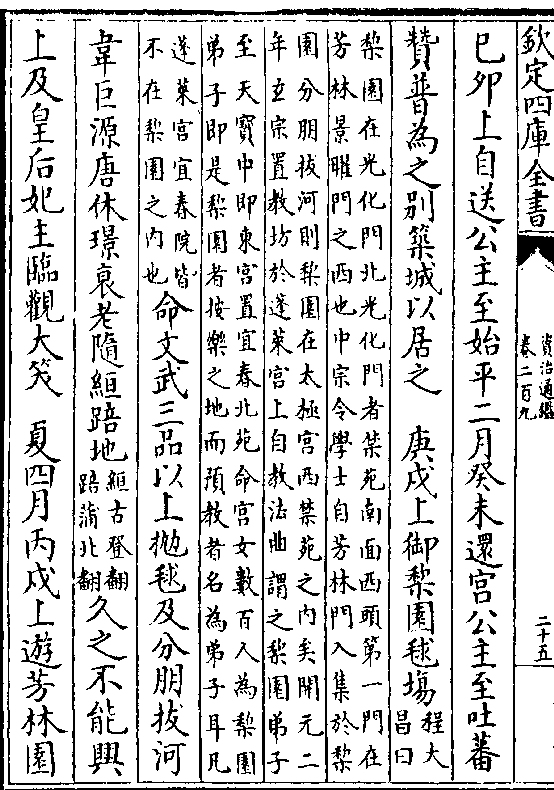 欽定四庫全書
資治通鑑
卷二百九
二十五
己卯上自送公主至始平二月癸未還宫公主至吐蕃
贊普為之别築城以居之　庚戌上御梨園毬場程大
昌曰
梨園在光化門北光化門者禁苑南面西頭第一門在
芳林景曜門之西也中宗令學士自芳林門入集於梨
園分朋拔河則梨園在太極宫西禁苑之内矣開元二
年玄宗置教坊於蓬萊宫上自教法曲謂之梨園弟子
至天寶中即東宫置宜春北苑命宫女數百人為梨園
弟子即是梨園者按樂之地而預教者名為弟子耳凡
蓬萊宫宜春院皆
不在梨園之内也命文武三品以上拋毬及分朋拔河
韋巨源唐休璟衰老隨絙踣地絙古登翻
踣蒲北翻久之不能興
上及皇后妃主臨觀大笑　夏四月丙戌上遊芳林園